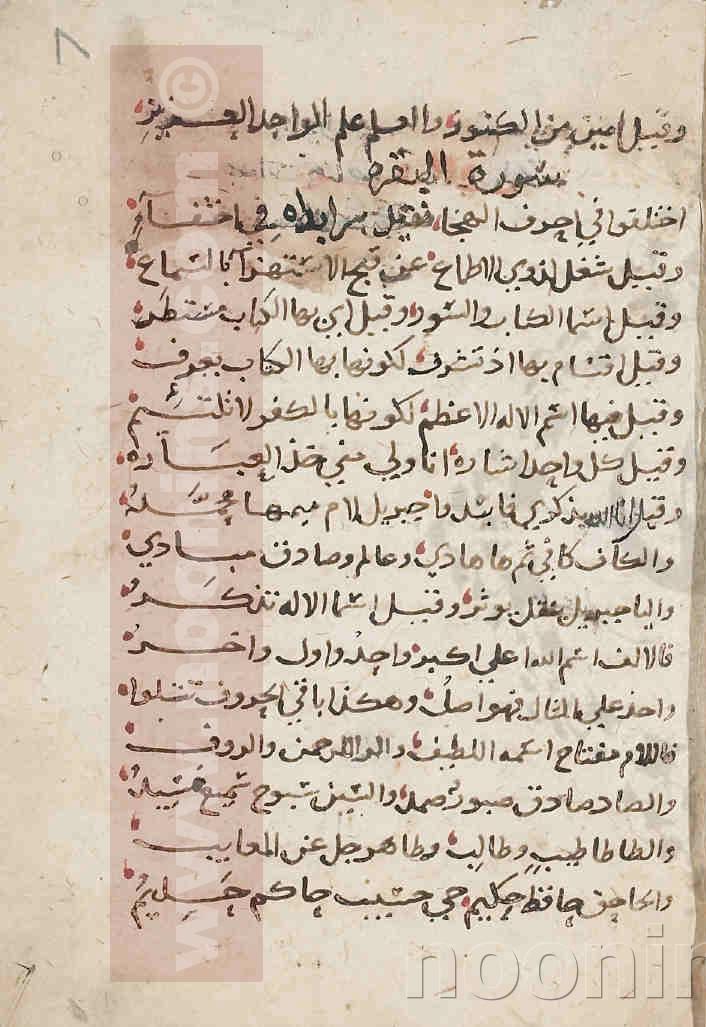 وقيل امين من الكنوز والعلم علم الواحد العزيز
سورة البقره
اختلفوا في احرف الهجا فقيل سر ابطه في اختفاء
وقيل شغل لذوي الاطماع عن قبح الاستهزا بالسماع
وقيل اسما الكتاب والسور وقيل اين بها الكتاب مستطر
وقيل اقسام بها اذ تشرف لكونها بها الكتاب يعرف
وقيل فيها اسم الاله الاعظم لكونها بالكفر لا تلتئم
وقيل كل واحد اشاره انا ولي مني خذ العباره
وقيل انا الله بذكري فابتد وا جبريل لام ميمها محمد
والكاف كافي ثم ها هادي وعالم وصادق مبادي
واليا جبريل عقل يوثر وقيل اسما الاله تذكر
فالالف اسم الله اعلي اكبر واحد واول واخر
واحذ علي المثال فهو اصل وهكذا باقي الحروف تتلوا
فاللام مفتاح اسمه اللطيف والرا الرحمن والروف
والصاد صادق صبور صمد والسين سبوح سميع سيد
والطا طا طيب وطالب وطاهر جل عن المعايب
والحا حق حافظ حكيم حي حسيب حاكم حليم
7
www.noonin.com ©
noonin